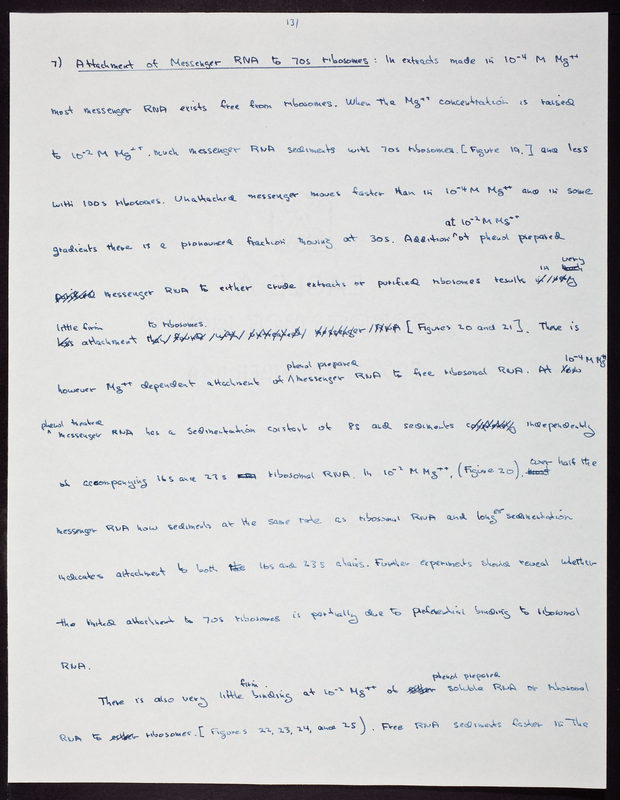 13/
7) Attachment of Messenger RNA to 70s ribosomes: In extracts made in 10⁻⁴ M Mg⁺⁺
most messenger RNA exists free from ribosomes. When the Mg⁺⁺ concentration is raised
to 10⁻² M Mg⁺⁺, much messenger RNA sediments with 70s ribosomes. [Figure 19.] and less
with 100s ribosomes. Unattached messenger moves faster than in 10⁻⁴ M Mg⁺⁺ and in some
at 10⁻² M Mg⁺⁺
gradients there is a pronounced fraction moving at 30s. Addition ^ of phenol prepared
very
messenger RNA to either crude extracts or purified ribosomes results in
little firm to ribosomes.
attachment [Figures 20 and 21]. There is
phenol prepared 10⁻⁴ M Mg⁺⁺
however Mg⁺⁺ dependent attachment of ^ messenger RNA to free ribosomal RNA. At
phenol treated
^ messenger RNA has a sedimentation constant of 8s and sediments independently
of accompanying 16s and 23s ribosomal RNA. In 10⁻² M Mg⁺⁺, (Figure 20), over half the
messenger RNA now sediments at the same rate as ribosomal RNA and longer sedimentation
indicates attachment to both 16s and 23s chains. Further experiments should reveal whether
the limited attachment to 70s ribosomes is partially due to preferential binding to ribosomal
RNA.
firm phenol prepared
There is also very little binding at 10⁻² Mg⁺⁺ of soluble RNA or ribosomal
RNA to ribosomes. [Figures 22, 23, 24, and 25). Free RNA sediments faster in the